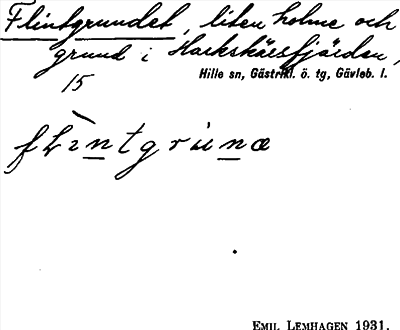 Flintgrundet, liten holme och
grund i Harkskärsfjärden,
15
Hille sn, Gästrikl. ö. tg, Gävleb. l.
fLìntgrúnæ
EMIL LEMHAGEN 1931.